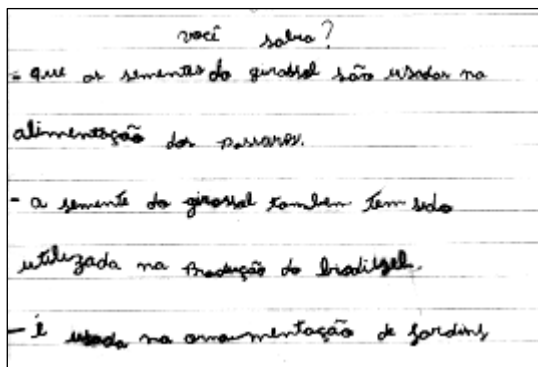 você sabia?
- que as sementes do girassol são usadas na
alimentação dos passaros.
- a semente do girassol tambem tem sido
utilizada na Produção do biodisel.
- é usada na ornaumentação de jardins